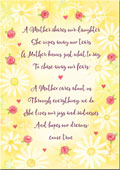 A Mother shares our laughter
She wipes away our tears
A Mother knows just what to say
To chase away our fears
A Mother cares about us
Through everything we do
She loves our joys and sadnesses
And hopes our dreams
come true